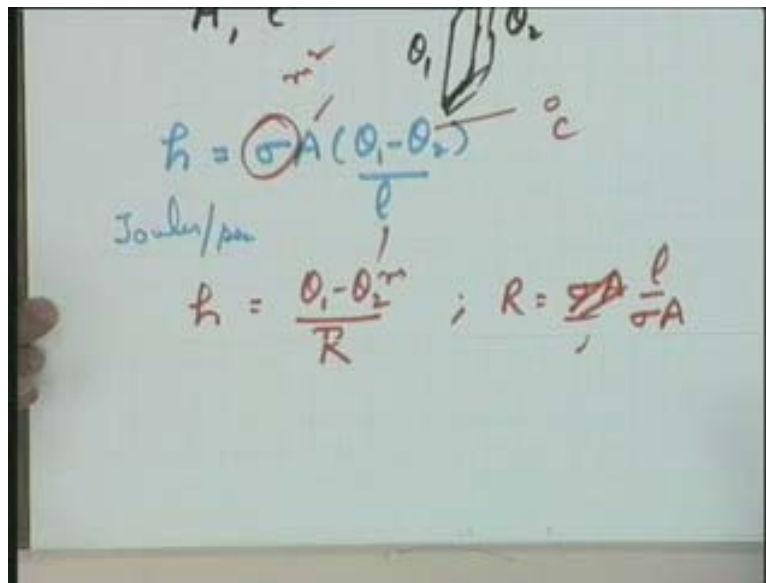 A, l
θ₁ θ₂
m²
h = σA(θ₁-θ₂) °C
l
Joules/sec m
h = θ₁-θ₂ ; R = l
R σA